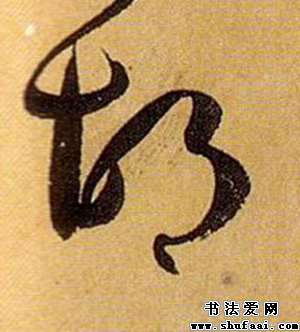 胡
书法爱网
www.shufaai.com